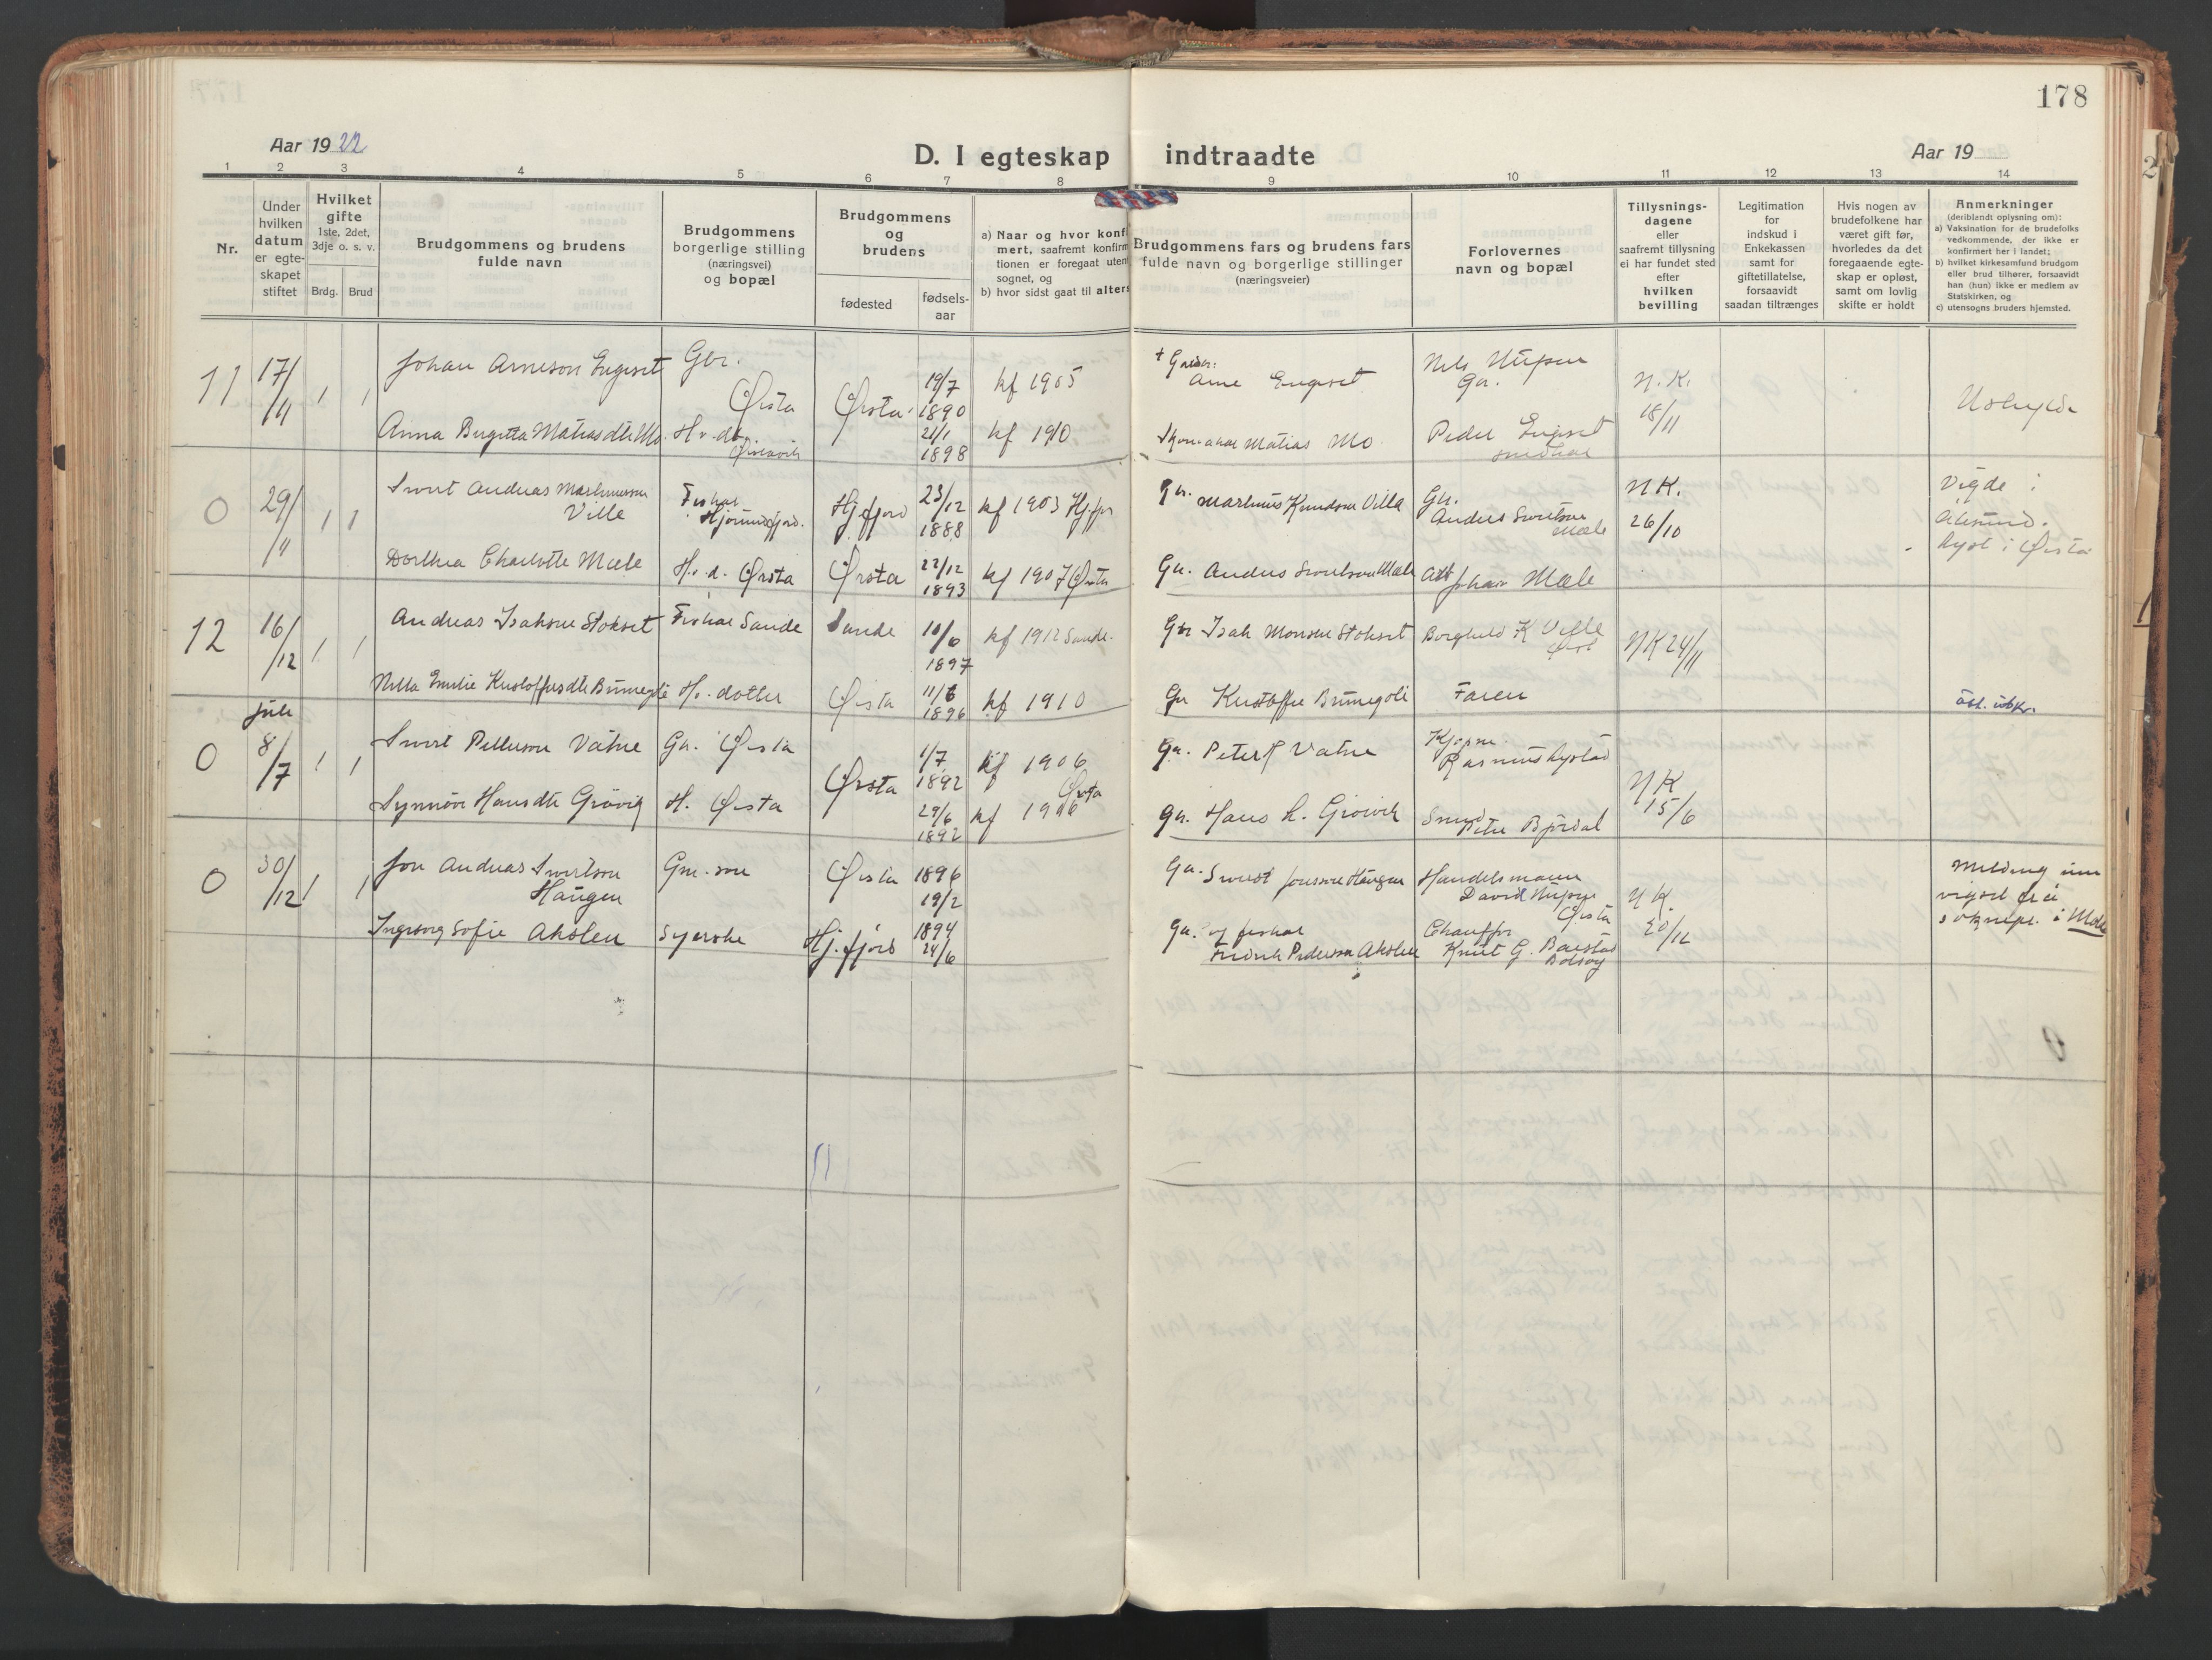 178
Aar 1922
D. I egteskap indtraadte
Aar 19
1 2 3 4 5 6 7 8 9 10 11 12 13 14
Nr.
Under
hvilken
datum
er egte-
skapet
stiftet
Hvilket
gifte
1ste, 2det,
3dje o. s. v.
Brdg. Brud
Brudgommens og brudens
fulde navn
Brudgommens
borgerlige stilling
(næringsvei)
og bopæl
Brudgommens
og
brudens
fødested
fødsels-
aar
a) Naar og hvor konf
mert, saafremt konfirm
tionen er foregaat uten
sognet, og
b) hvor sidst gaat til alters
Brudgommens fars og brudens fars
fulde navn og borgerlige stillinger
(næringsveier)
Forlovernes
navn og bopæl
Tillysnings-
dagene
eller
saafremt tillysning
ei har fundet sted
efter
hvilken
bevilling
Legitimation
for
indskud i
Enkekassen
samt for
giftetillatelse,
forsaavidt
saadan tiltrænges
Hvis nogen av
brudefolkene har
været gift før,
hvorledes da det
foregaaende egte-
skap er opløst,
samt om lovlig
skifte er holdt
Anmerkninger
(deriblandt oplysning om):
a) Vaksination for de brudefolks
vedkommende, der ikke er
konfirmert her i landet;
b) hvilket kirkesamfund brudgom
eller brud tilhører, forsaavidt
han (hun) ikke er medlem av
Statskirken, og
c) utensogns bruders hjemsted.
11 17/11 1 1 Johan Arneson Engeset Gbr.
Ørsta Ørsta 19/7 1890 kf 1905
Arne Engeset
Gbr.
N.K.
18/11
Anna Birgitta Matiasdtr Mo H.v.dt. 21/1 1898 kf 1910
Matias Mo Peder Engeset
0 29/11 1 1 Sivert Andreas Martinusson
Ville
Fiskar
Hjørundfjord. Hj.fjord 23/12 1888 kf 1903 Hj.fjr
Gbr. Martinus Knudson Villa
Gbr.
Anders Sivertson
Mæle
N K.
26/10
Vigde i
Ålesund.
lyst i Ørsta
Dorthea Charlotte Mæle H.v.d. Ørsta Ørsta 22/12 1893 kf 1907 Ørsta
Gbr. Anders Sivertson Mæle
Johan Mæle
12 16/12 1 1 Andreas Isakson Stokset Fiskar Sande Sande 10/6 1897 kf 1912 Sande.
Gbr Isak Monson Stokset Borghild K Velle
NK 24/11
Emilie Kristoffersdtr H.v. dotter Ørsta 11/6 1896 kf 1910
Gbr Kristoffer Faren
juli
0 8/7 1 1 Sivert Petterson Vatne Gbr. Ørsta Ørsta 1/7 1892 kf 1906
Ørsta
Gbr. Peter Vatne
Kjøpm.
Rasmus Rystad
N K
15/6
Synnøve Hansdtr Grøvik H. Ørsta 29/6 1892 kf 1906
Gbr. Hans L. Grøvik Smed
Peter Bjørdal
0 30/12 1 1 Jon Andreas Sivertson
Haugen
Gm.-son Ørsta 1896 19/2
Gbr. Sivert Jonsson Haugen Handelsmann
David
Ørsta
N K.
20/12
Melding um
vigsel frå
soknepr. i Molde
Ingeborg Sofie Akslen Syerske Hj.fjord 1894 24/6
Gbr. og fiskar
Fredrik Pederson Akslen
Chauffør
Knut G. Barstad
Bolsøy